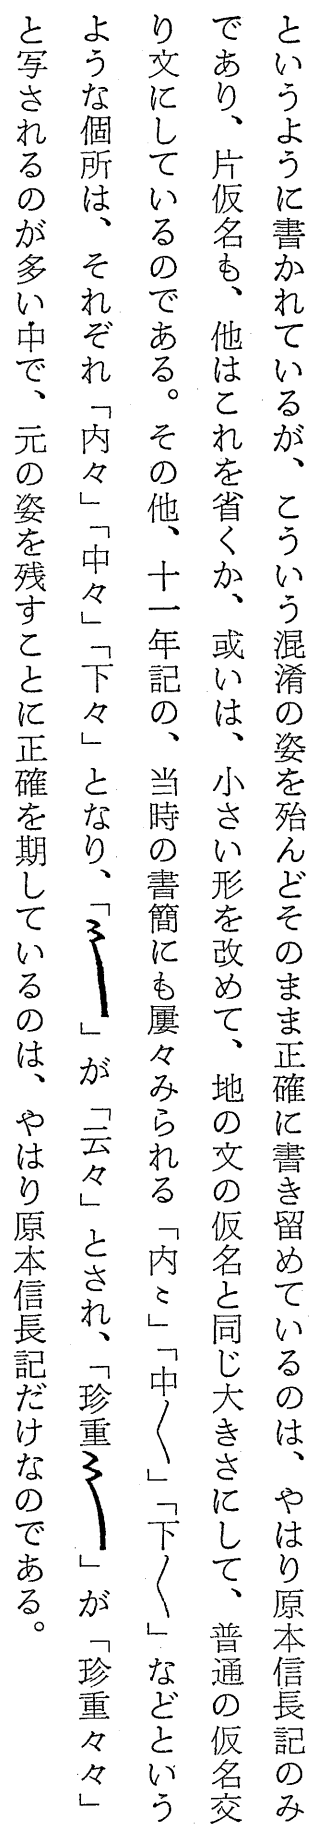 というように書かれているが、こういう混淆の姿を殆んどそのまま正確に書き留めているのは、やはり原本信長記のみ
であり、片仮名も、他はこれを省くか、或いは、小さい形を改めて、地の文の仮名と同じ大きさにして、普通の仮名交
り文にしているのである。その他、十一年記の、当時の書簡にも屢々みられる「内〻」「中〱」「下〱」などという
ような個所は、それぞれ「内々」「中々」「下々」となり、「」が「云々」とされ、「珍重」が「珍重々々」
と写されるのが多い中で、元の姿を残すことに正確を期しているのは、やはり原本信長記だけなのである。